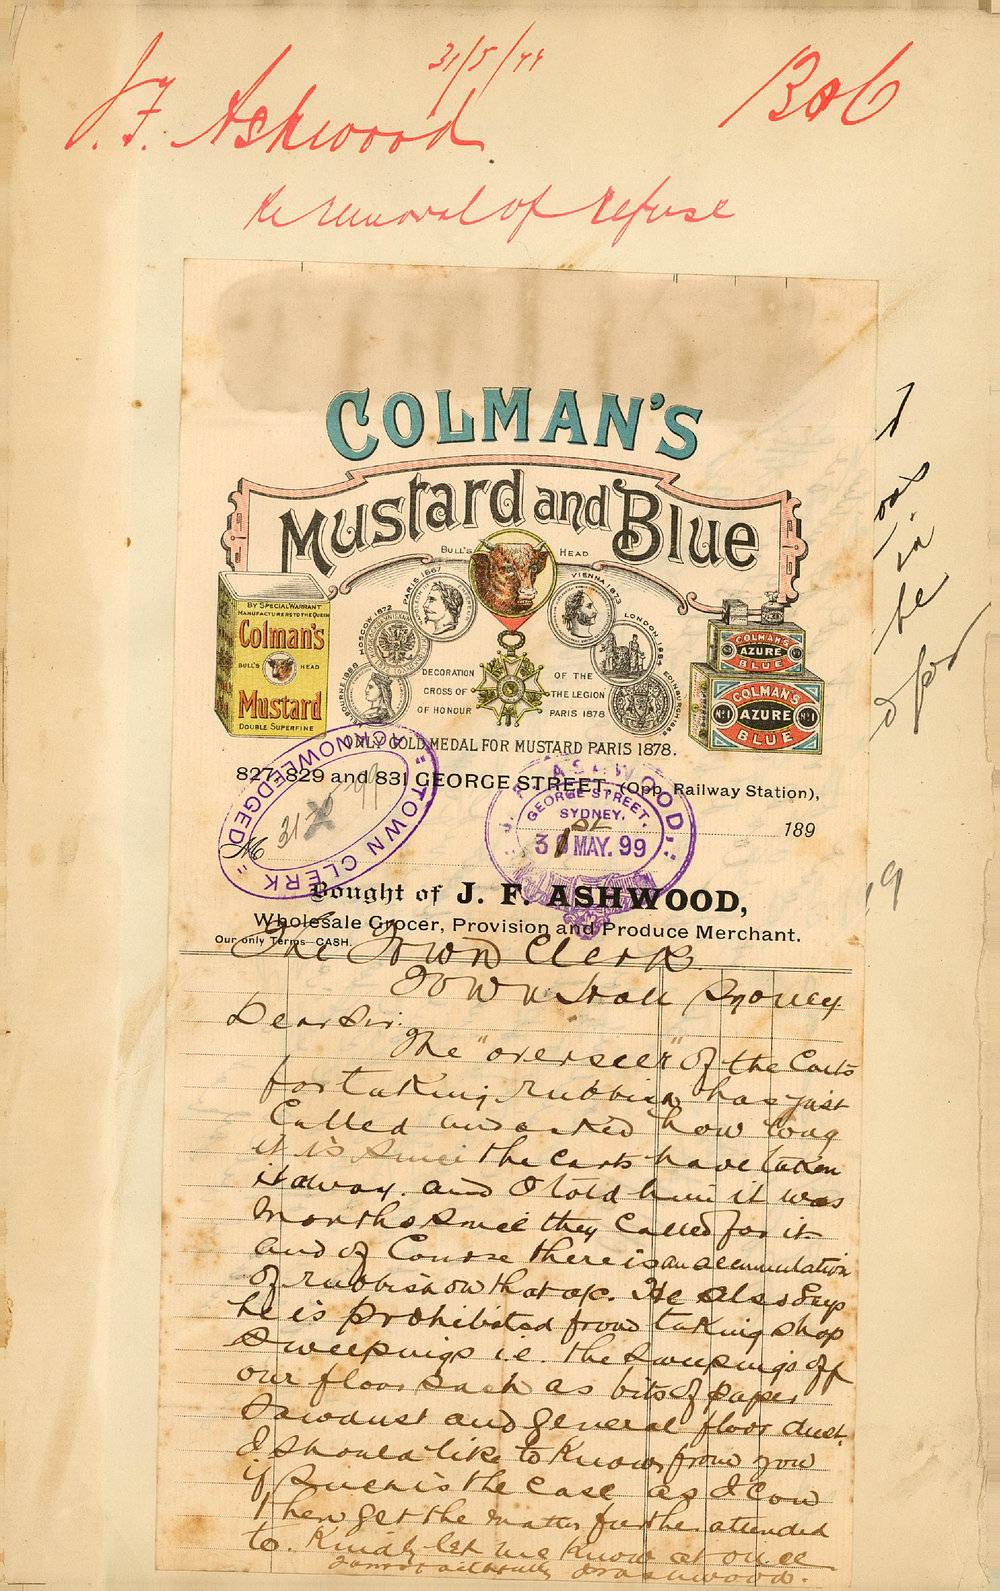 31/5/99
J. F. Ashwood
re removal of refuse
COLMAN'S
Mustard and Blue
BULL'S HEAD
PARIS 1867
VIENNA 1873
MOSCOW 1872
LONDON 1884
EDINBURGH
BY SPECIAL WARRANT
MANUFACTURERS TO THE QUEEN
Colman's
BULL'S HEAD
Mustard
DOUBLE SUPERFINE
DECORATION OF THE
CROSS OF THE LEGION
OF HONOUR PARIS 1878
COLMAN'S
AZURE
BLUE
COLMAN'S
No 1 AZURE No 1
BLUE
ONLY GOLD MEDAL FOR MUSTARD PARIS 1878.
827, 829 and 831 GEORGE STREET, (Opp. Railway Station),
TOWN CLERK
ACKNOWLEDGED
J. F. ASHWOOD
GEORGE STREET,
SYDNEY.
MAY. 99
189
M
Bought of J. F. ASHWOOD,
Wholesale Grocer, Provision and Produce Merchant.
Our only Terms—CASH.
The Town Clerk
Town Hall Sydney
Dear Sir.
The "overseer" of the Carts
for taking rubbish has just
Called and asked how long
it is since the carts have taken
it away. and I told him it was
Months since they Called for it
and of Course there is an accumulation
of rubbish on that a/c. He also Says
he is prohibited from taking shop
Sweepings i.e. the Sweepings off
our floor such as bits of paper
Sawdust and general floor dust.
I should like to Know from you
if such is the case as I can
then get the matter further attended
to. Kindly let me Know at once
Yours faithfully J F Ashwood.
in
be
for